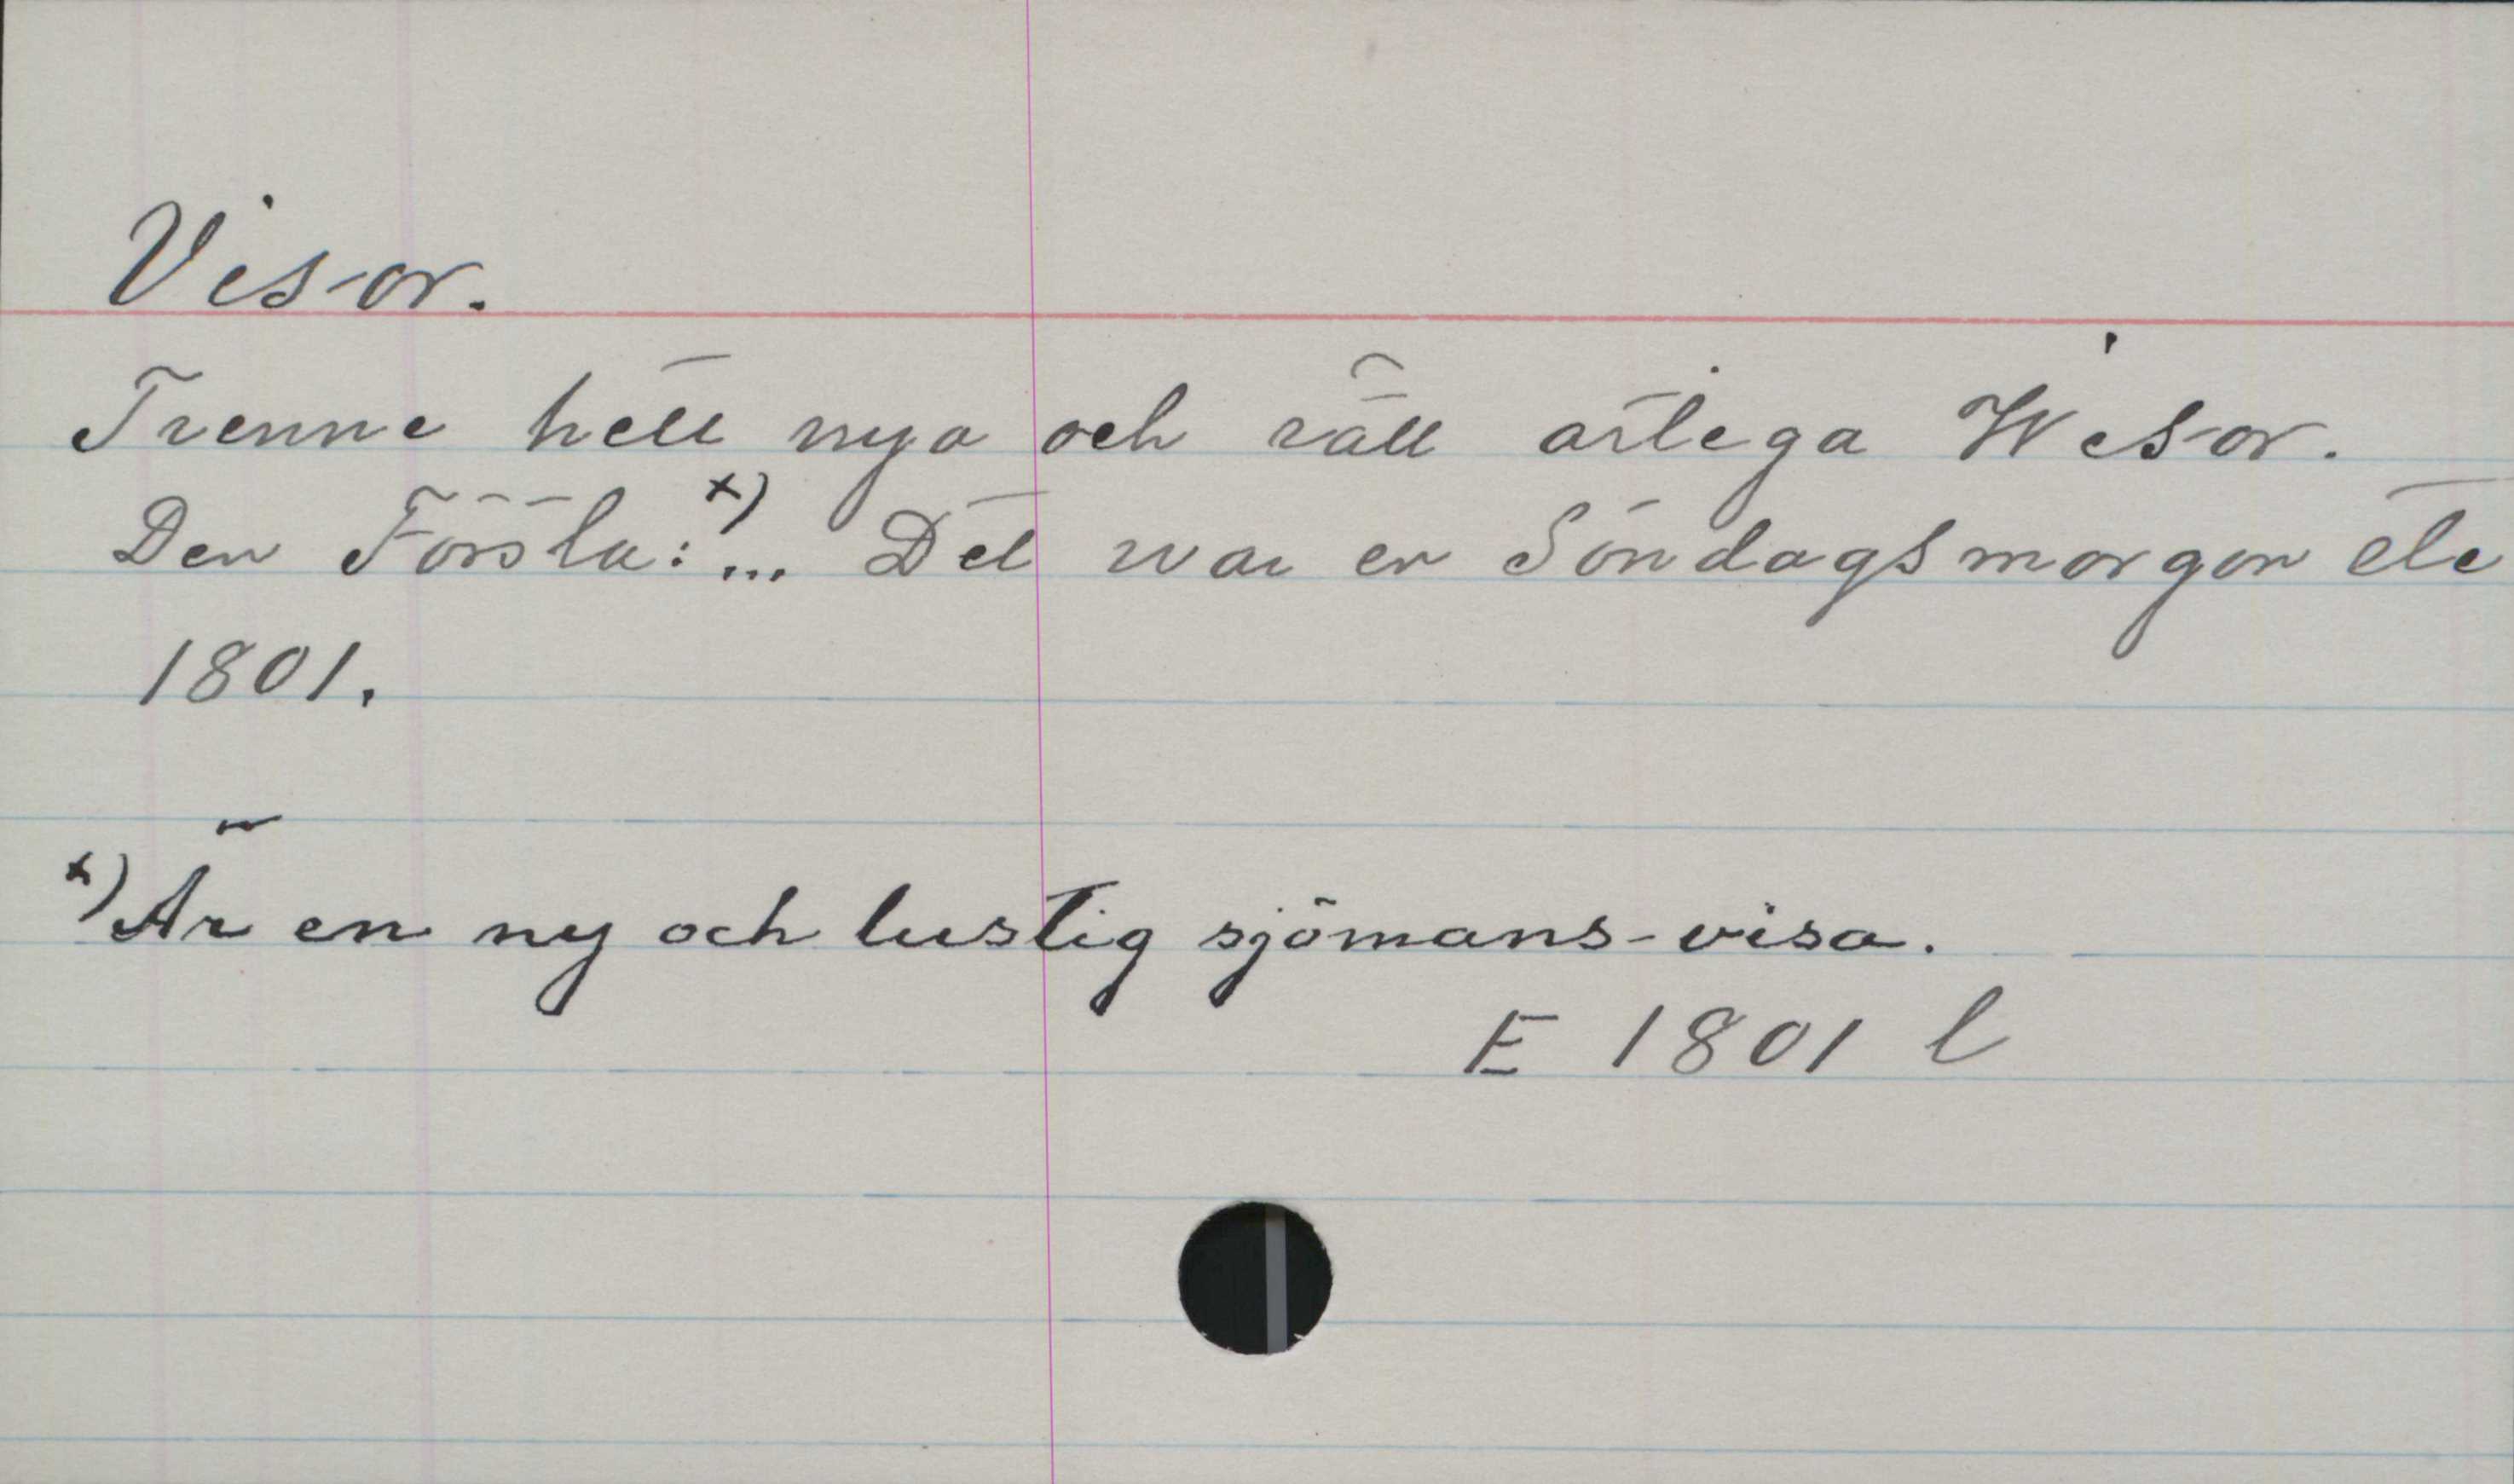 Visor.
Trenne helt nya och rätt artiga Wisor.
Den Första: x) ... Det war en Söndagsmorgon etc
1801.
x) Är en ny och lustig sjömans-visa.
E 1801 l